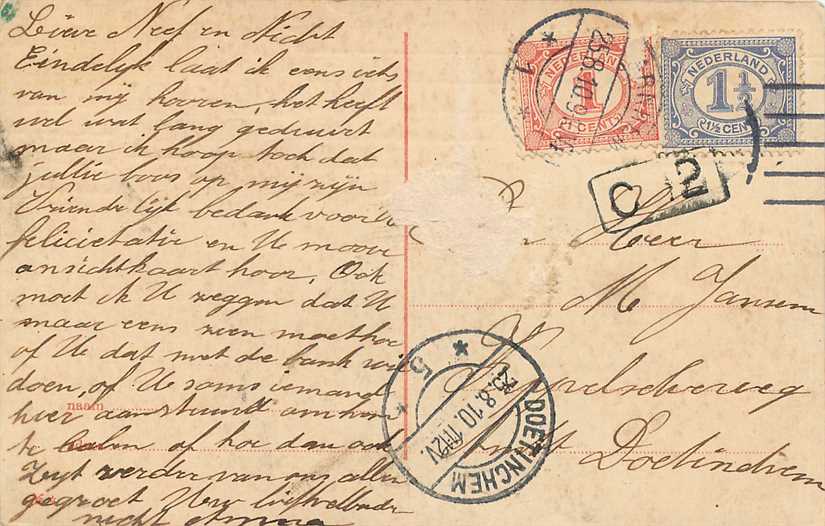 Lieve Neef en Nicht
Eindelijk laat ik eens iets
van mij hooren, het heeft
wel wat lang geduurt
maar ik hoop toch dat
jullie boos op mij zijn
Vriendelijk bedankt voor de
felicietatie en Uw mooie
ansichtkaart hoor. Ook
moet ik U zeggen dat U
maar eens zien moet hoe
of U dat met de bank wil
doen, of U soms iemand
hier aanstuurdt om hem
te halen of hoe dan ook
Zijt verder van ons allen
gegroet Uw liefhebbende
nicht
naam
NEDERLAND
1
1 CENT
NEDERLAND
1½
1½ CENT
25.8.10.9
1
C 2
Heer
M Jansen
Doetinchem
DOETINCHEM
25.8.10.11-12V
5